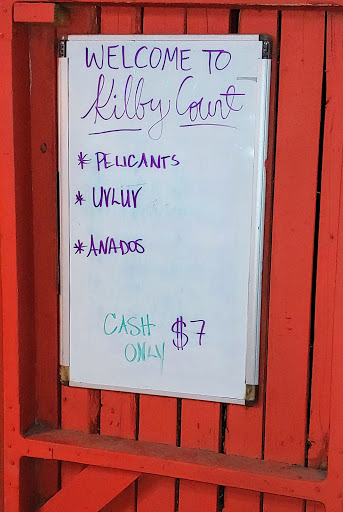 WELCOME TO
Kilby Court
* PELICANTS
* UVLUV
* ANADOS
CASH $7
ONLY